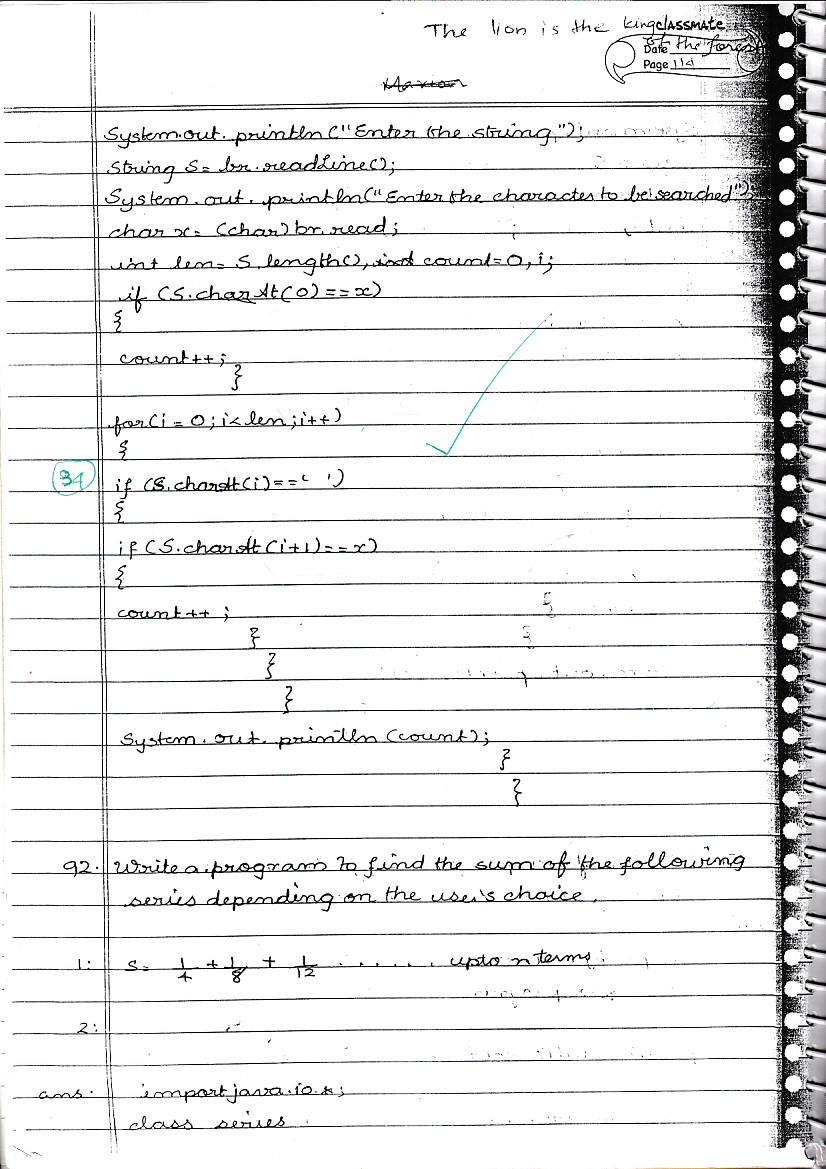 The lion is the king
of the forest
classmate
Date
Page 114
System.out.println("Enter the string");
String S= br.readLine();
System.out.println("Enter the character to be searched");
char x= (char)br.read;
int len= S.length(), count=0, i;
if (S.charAt(0)==x)
{
count++;
}
for(i=0; i<len; i++)
{
34 if (S.charAt(i)==' ')
{
if (S.charAt(i+1)==x)
{
count++;
}
}
}
System.out.println(count);
}
}
92. Write a program to find the sum of the following
series depending on the user's choice.
1: S= 1/4 + 1/8 + 1/12 ...... upto n terms.
2:
ans. import java.io.*;
class series